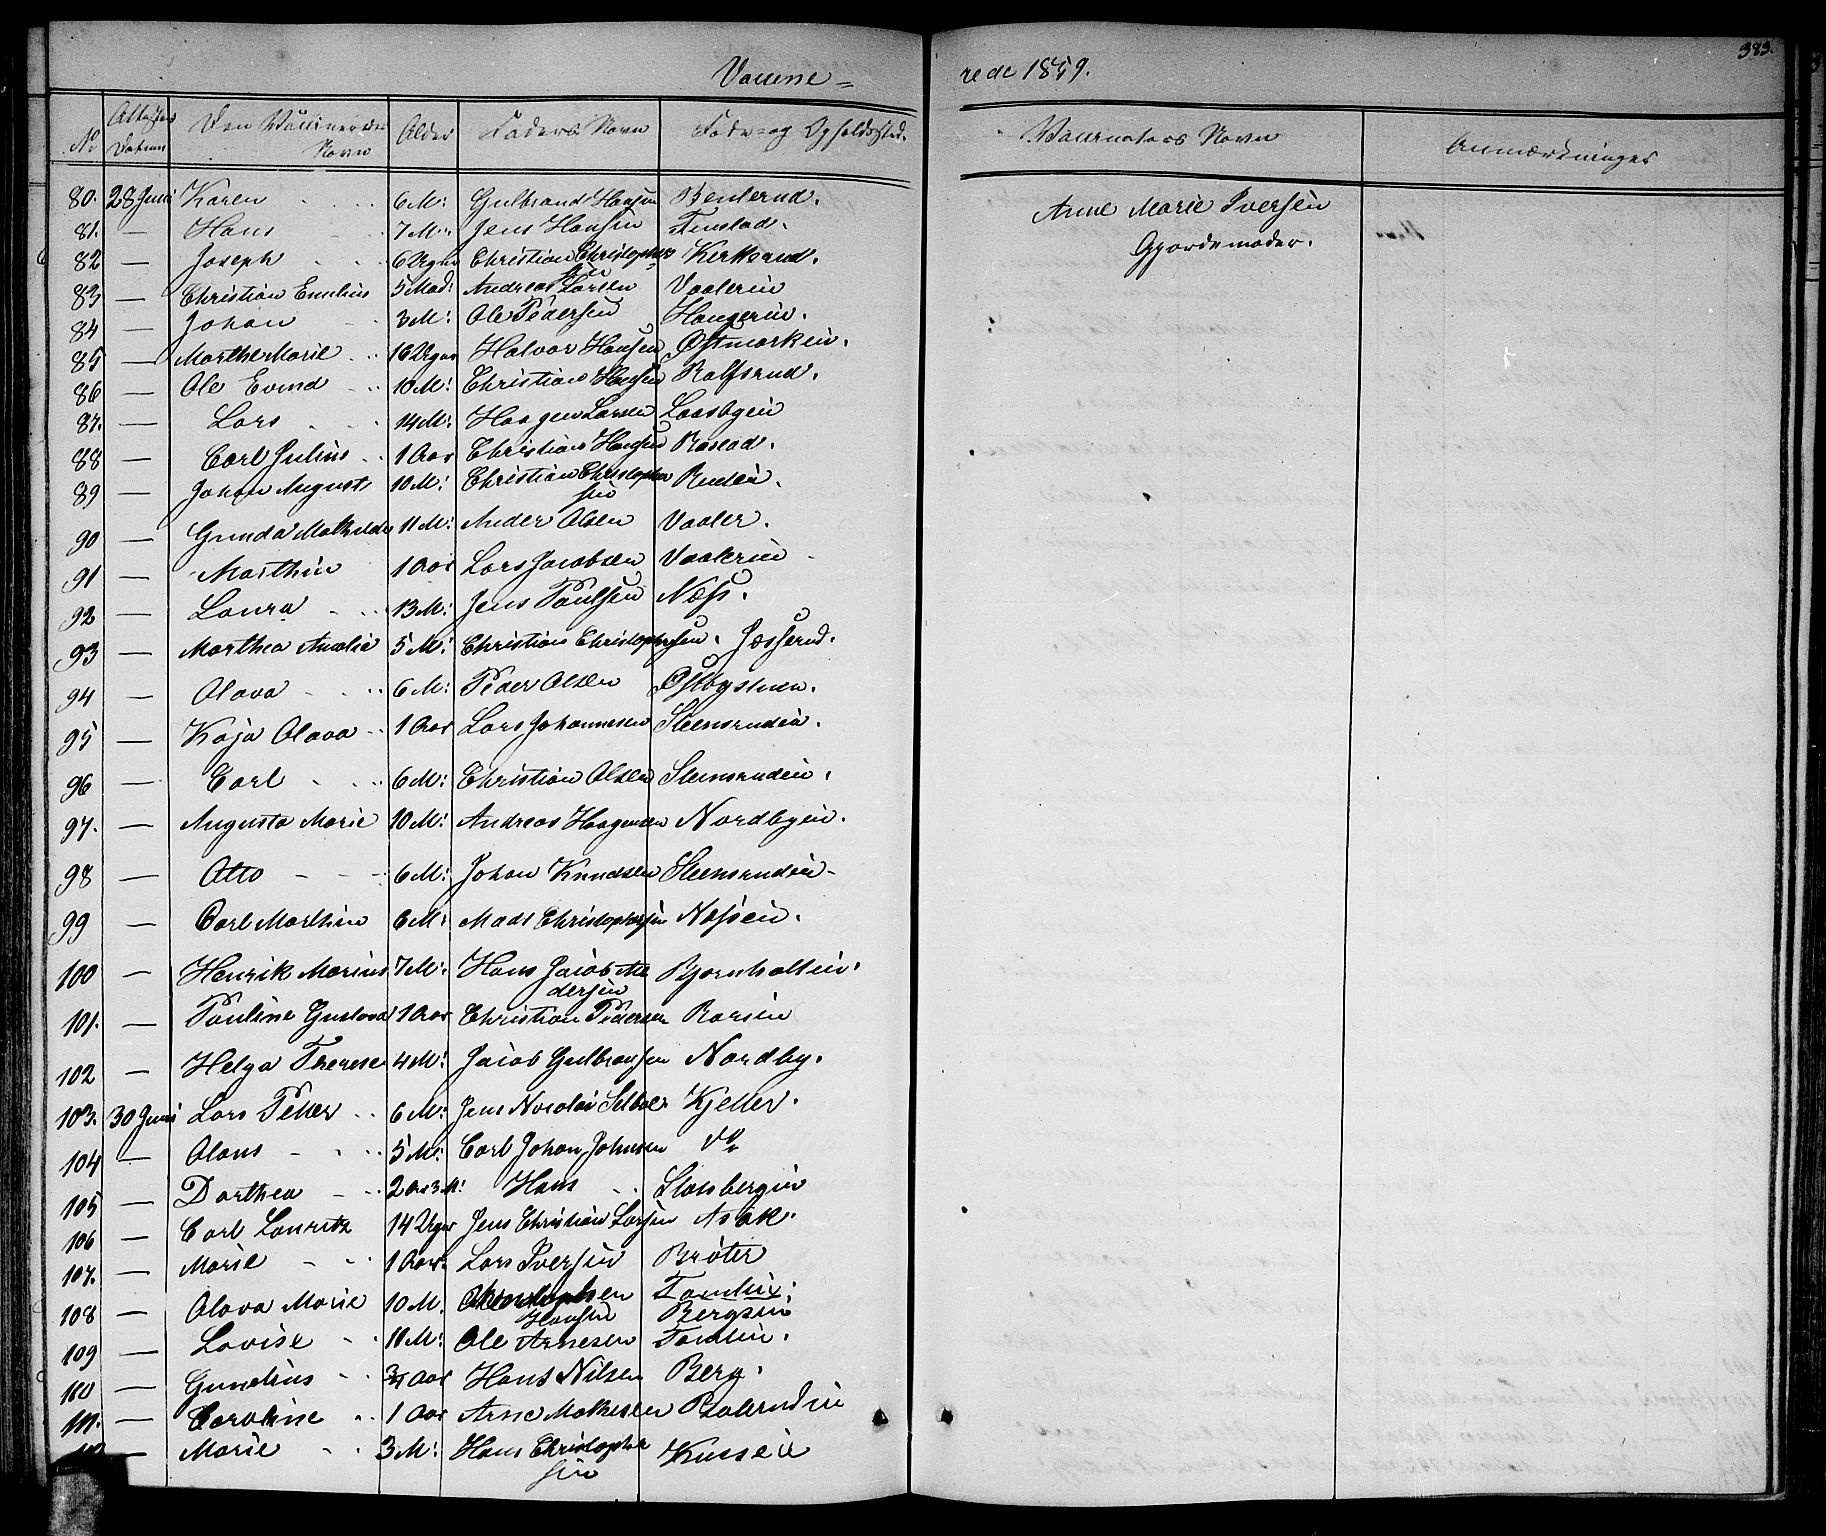 383.
Vaccine=rede 1859.
No Attestens Datum Den Vaccineredes Navn Alder Faders Navn Føde- og Opholdssted. Vaccinateurs Navn Anmærkninger
80. 28 Juni Karen 6 M: Gulbrand Hansen Benterud. Anne Marie Iversen
81. — Hans 7 M: Jens Hansen Finstad. Gjordemoder.
82 — Joseph 6 Uger Christian Christophersen Kerksrud.
83 — Christian Emilius 5 Mad: Andreas Larsen Vaalerin
84 — Johan 3 M: Ole Pedersen Haugerin.
85 — Marthe Marie 16 Uger Halvor Hansen Østmarken.
86 — Ole Evend 10 M: Christian Hansen Rolfsrud.
87. — Lars 14 M: Haagen Larsen Laasbyen
88 — Carl Julius 1 Aar Christian Hansen Rastad.
89 — Johan August 10 M: Christian Christophersen Ruden.
90 — Gunda Mathilde 11 M: Ander Olsen Vaaler.
91 — Marthin 1 Aar Lars Jacobsen Vaalerin
92 — Laura 13 M: Jens Paulsen Næss.
93 — Marthea Amalie 5 M: Christian Christophersen. Jæsserud.
94 — Olava 6 M: Peder Olsen Østbystuen.
95 — Kaja Olava 1 Aar Lars Johannesen Steensruden.
96 — Carl 6 M: Christian Olsen Steensruden.
97. — Augusta Marie 10 M: Andreas Haagensen Nordbyen.
98 — Otto 6 M: Johan Knudsen Steensruden
99 — Carl Marthin 6 M: Mads Christophersen Næssen.
100 — Henrik Marius 7 M: Hans Jacob Pedersen Bjørnholten.
101. — Pauline Gustava 1 Aar Christian Pedersen Raasen
102 — Helga Therese 4 M: Jacob Gulbransen Nordby.
103. 30 Juni Lars Petter 6 M: Jens Nicolai Kjeller.
104 — Olaus 5 M: Carl Johan Johnsen do
105 — Dorthea 2 Aar 3 M: Hans Slatsbergin
106 — Carl Lauritz 14 Uger Jens Christian Larsen Asak.
107. — Marie 1 Aar Lars Iversen Brøter
108 — Olava Marie 10 M. Hansen Bergsen
109 — Lovise 11 M: Ole Arnesen Tomten.
110 — Gunelius 3 Aar Hans Nilsen Berg.
111. — Caroline 1 Aar Arne Mathesen Baterudin
112 — Marie 3 M: Hans Christophersen Kussen